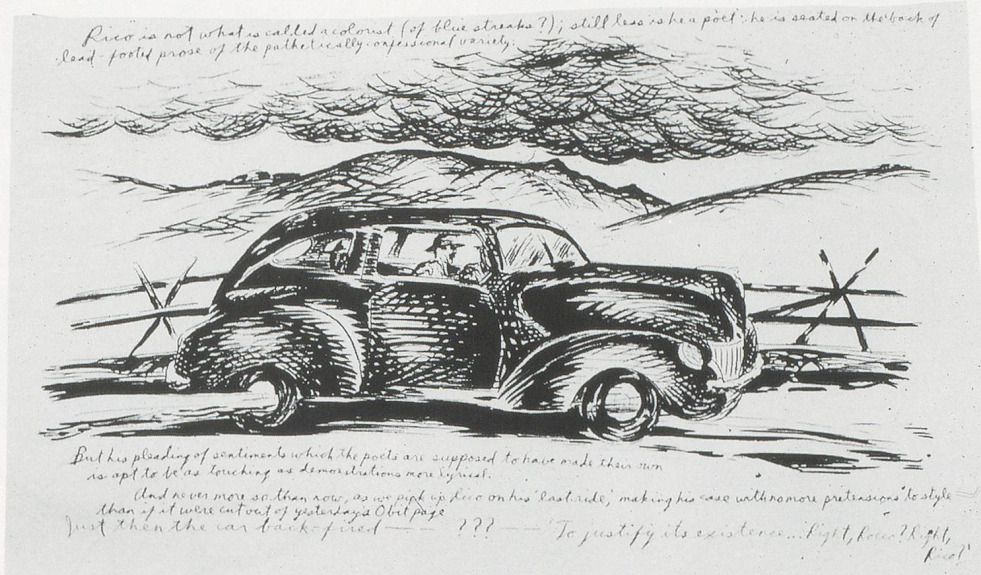 Rico is not what is called a colorist (of blue streaks?); still less is he a poet: he is seated on the back of
lead-footed prose of the pathetically confessional variety.
But his pleading of sentiments which the poets are supposed to have made their own
is apt to be as touching as demonstrations more lyrical.
And never more so than now, as we pick up Rico on his 'last ride,' making his case with no more pretensions to style
than if it were cut out of yesterday's Obit page
Just then the car back-fired — ??? — 'To justify its existence... Right, Rocco? Right,
Rico?'